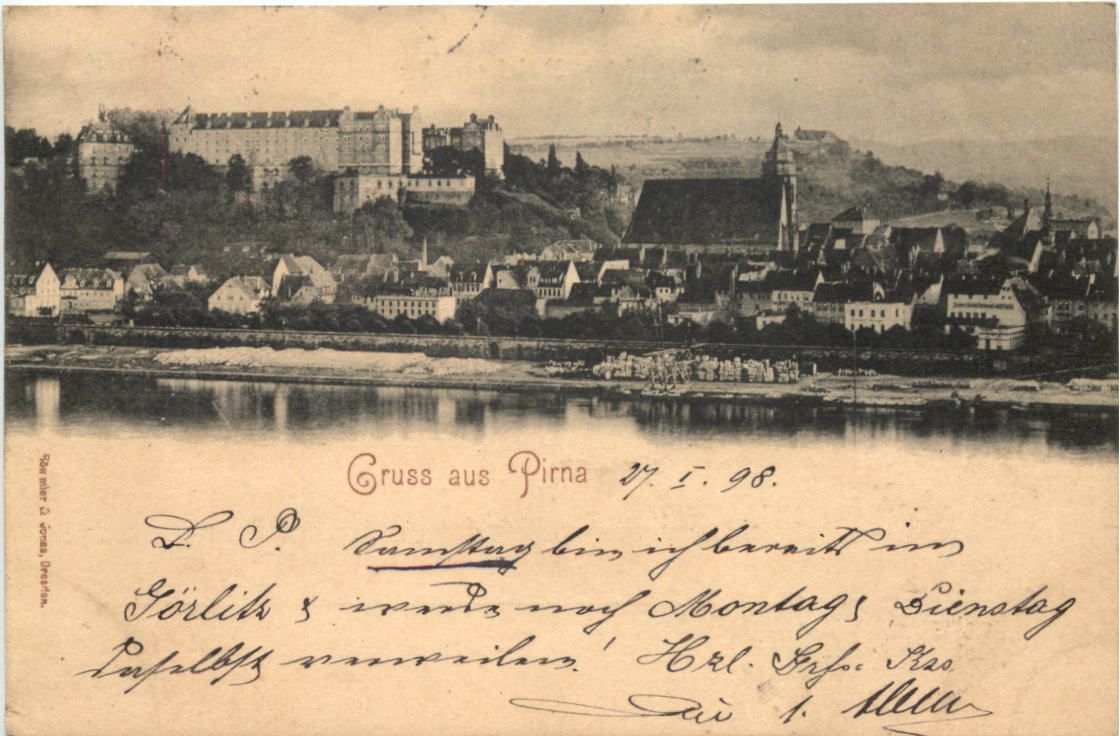 Gruss aus Pirna 27. I. 98.
Römmler & Jonas, Dresden.
L. P. Samstag bin ich bereits in
Görlitz & werde noch Montag & Dienstag
daselbst verweilen! Hzl. Grß.